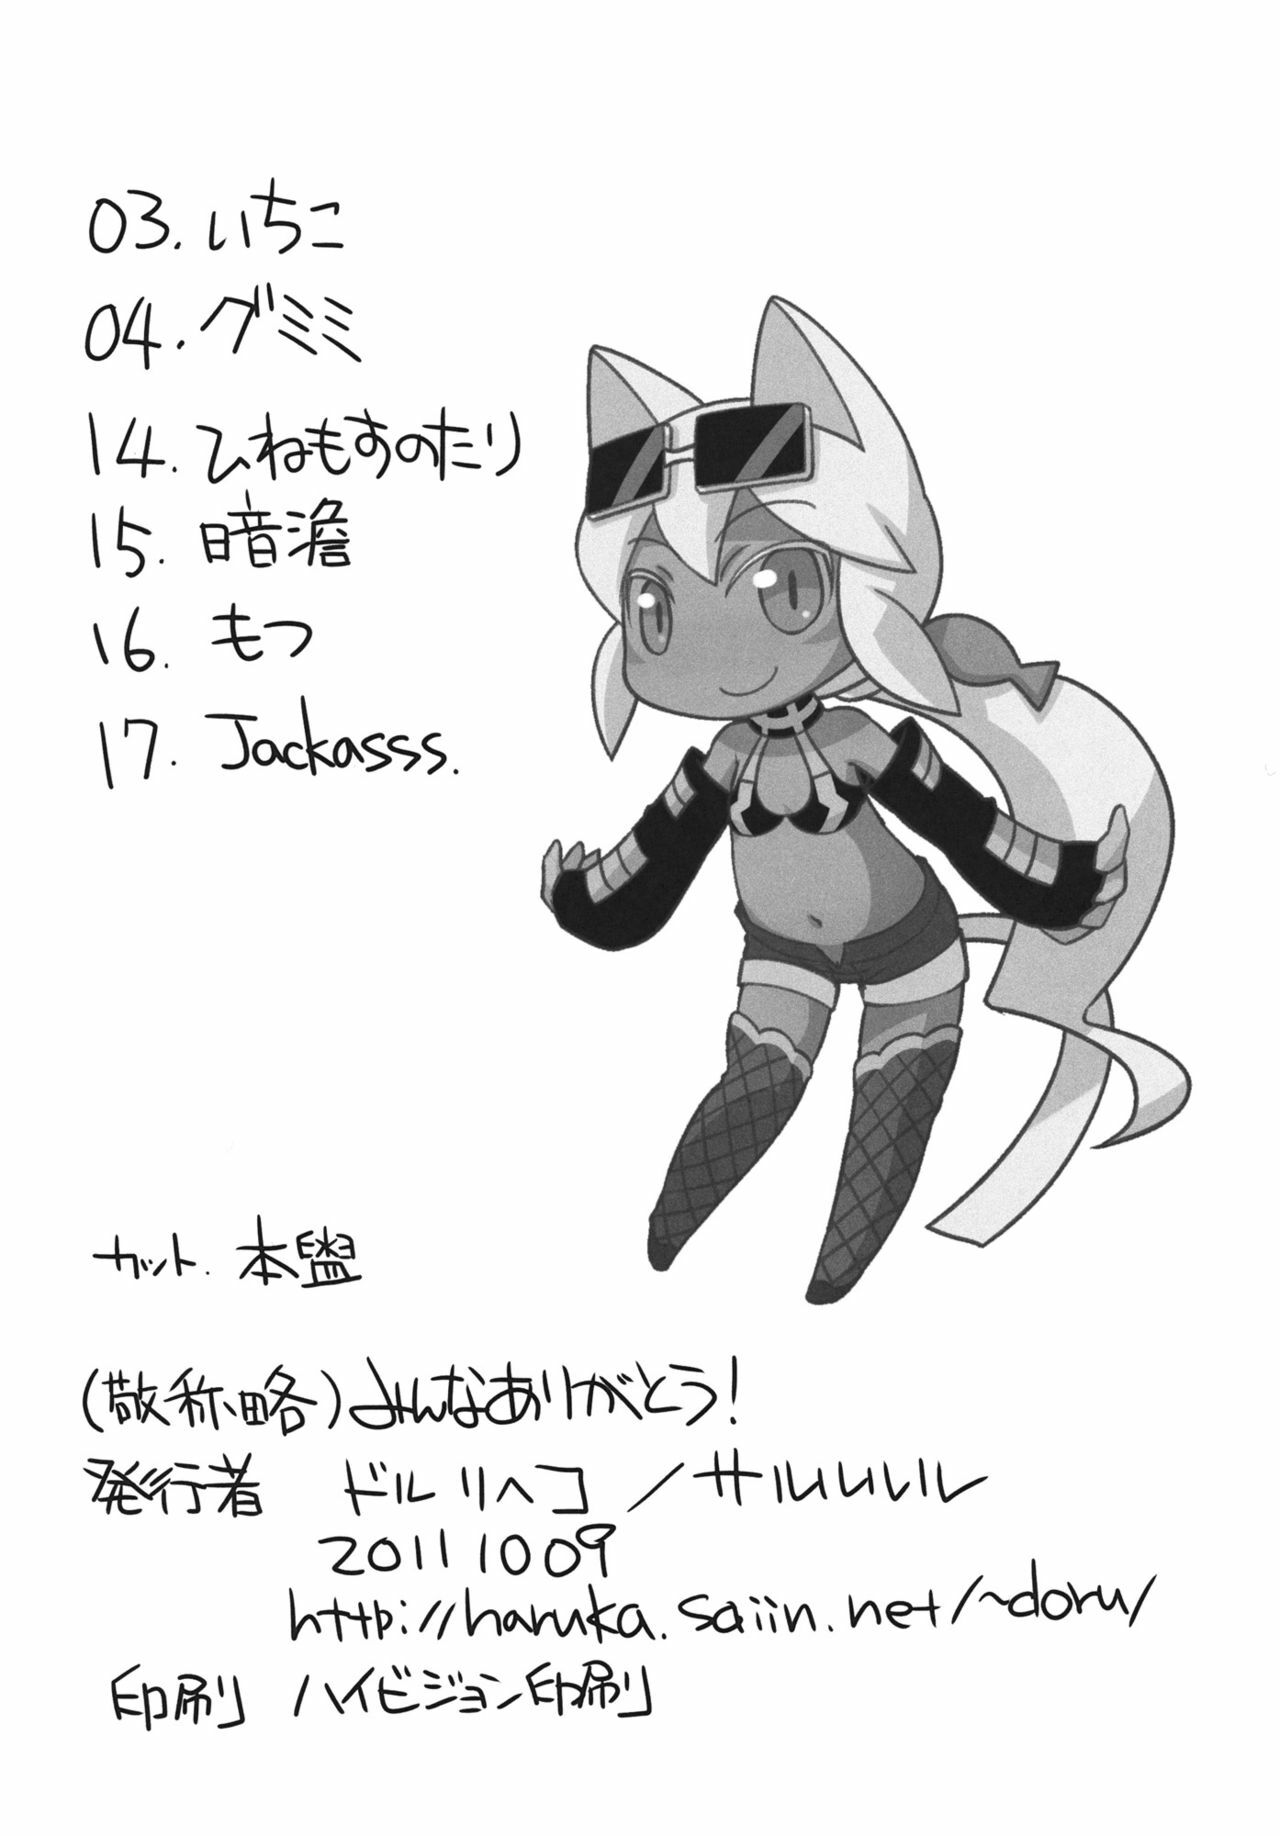 03. いちこ
04. グミミ
14. ひねもすのたり
15. 暗澹
16. もつ
17. Jackasss.
カット. 本盥
(敬称略)みんなありがとう!
発行者 ドルリヘコ/サルルルレル
20111009
http://haruka.saiin.net/~doru/
印刷 ハイビジョン印刷